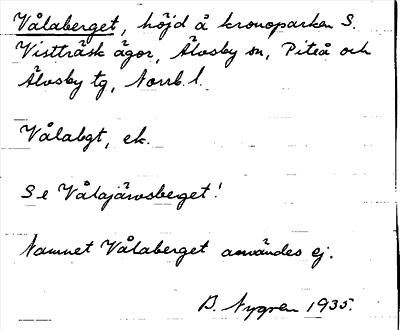 Vålaberget, höjd å kronoparken S.
Vistträsk ägor, Älvsby sn, Piteå och
Älvsby tg, Norrb. l.
Vålabgt, ek.
Se Vålajärvsberget!
Namnet Vålaberget användes ej.
B. Nygren 1935.